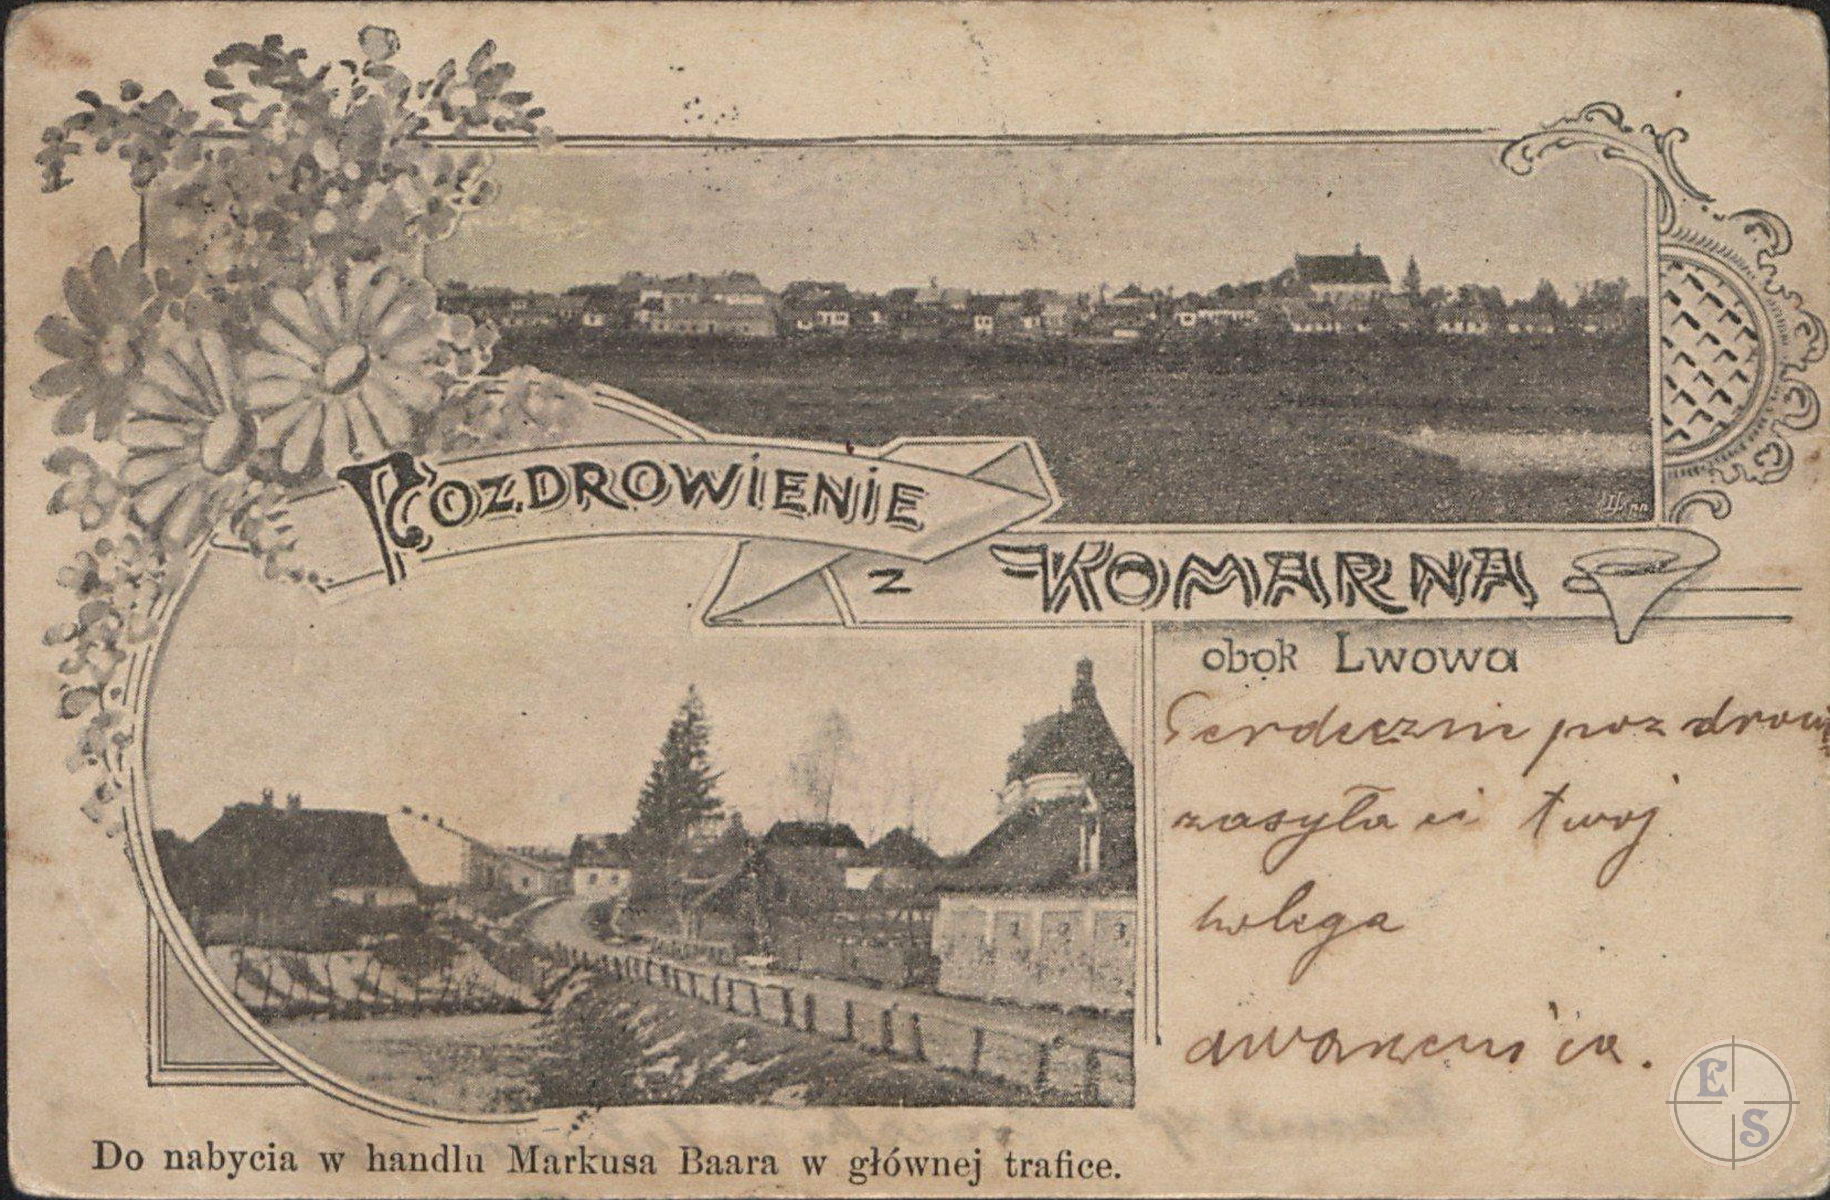 POZDROWIENIE
z KOMARNA
obok Lwowa
Serdeczni pozdrowi
zasyła ci twoj
kolega
Do nabycia w handlu Markusa Baara w głównej trafice.
E
S